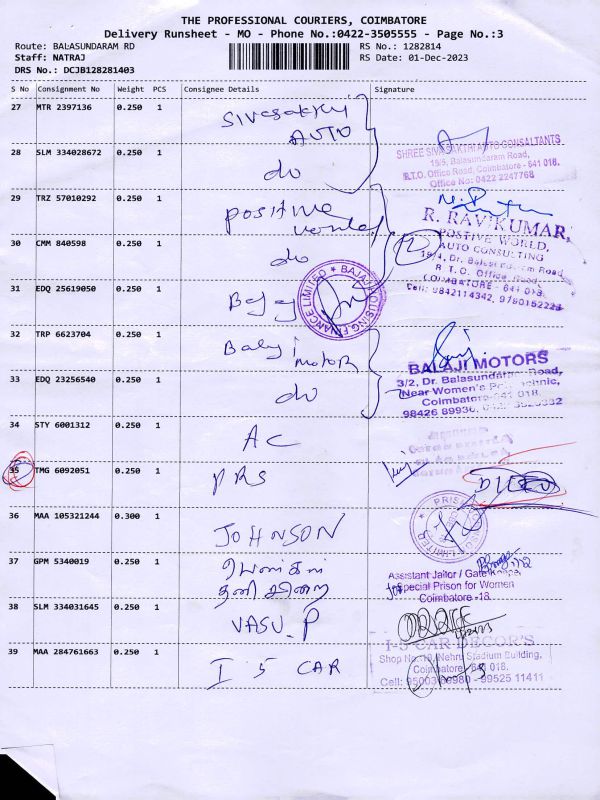 THE PROFESSIONAL COURIERS, COIMBATORE
Delivery Runsheet - MO - Phone No.:0422-3505555 - Page No.:3
Route: BALASUNDARAM RD
RS No.: 1282814
Staff: NATRAJ
RS Date: 01-Dec-2023
DRS No.: DCJB128281403
S No Consignment No Weight PCS Consignee Details Signature
27 MTR 2397136 0.250 1 Sivasakthi
AUTO
28 SLM 334028672 0.250 1 do
SHREE SIVASAKTHI AUTO CONSULTANTS
19/5, Balasundaram Road,
R.T.O. Office Road, Coimbatore - 641 018.
Office No: 0422 2247768
29 TRZ 57010292 0.250 1 positive
world
R. RAVIKUMAR,
POSTIVE WORLD,
AUTO CONSULTING
30 CMM 840598 0.250 1 do
2
19/4, Dr. Balasundaram Road
R. T. O. Office Road,
COIMBATORE - 641 018
Cell: 9842114342, 9790152223
31 EDQ 25619050 0.250 1 Bajaj
BAJAJ HOUSING FINANCE LIMITED
32 TRP 6623704 0.250 1 Balaji
motors
BALAJI MOTORS
33 EDQ 23256540 0.250 1 do
3/2, Dr. Balasundaram Road,
Near Women's Polytechnic,
Coimbatore-641 018.
98426 89930,
34 STY 6001312 0.250 1 AC
35 TMG 6092051 0.250 1 PRS
36 MAA 105321244 0.300 1 JOHNSON
LIMITED
37 GPM 5340019 0.250 1 பெண்கள்
தனிசிறை
Assistant Jailor / Gate
Special Prison for Women
Coimbatore -18.
38 SLM 334031645 0.250 1 VASU. P
39 MAA 284761663 0.250 1 I 5 CAR
I-5 CAR DECOR'S
Shop No. 10, Nehru Stadium Building,
Coimbatore - 641 018.
Cell: 95003 69980 - 99525 11411